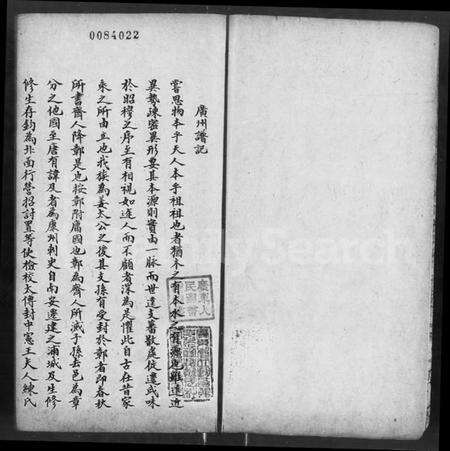 0084022
廣州譜記
嘗思物本乎天人本乎祖祖也者猶木之有本水之有源也雖遠近
異勢疎密異形要其本源則實由一脈而世遠支蕃散處從遷或昧
於昭穆之序至有相視如途人而不顧者深為是懼此自古在昔家
乘之所由立也我族為姜太公之後其支孫有受封於鄣者即春秋
所書齊人降鄣是也按鄣附庸國也鄣為齊人所滅子孫去邑為章
分之他國至唐有諱及者為康州刺史自南安遷建之浦城及生修
修生存鈞為北面行營招討置等使檢校太傅封申寃王夫人練氏